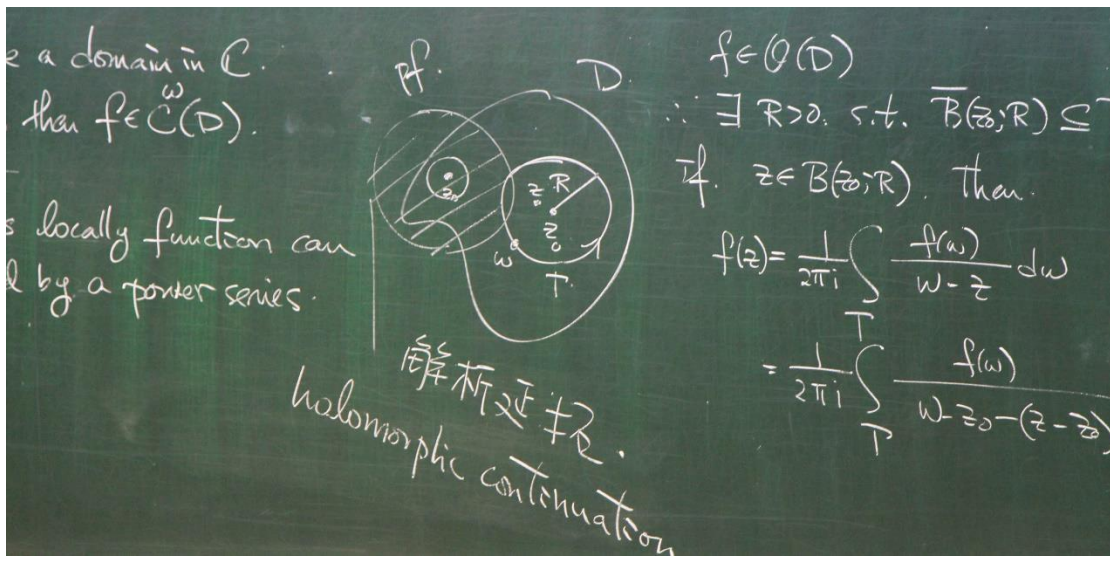 e a domain in ℂ.
. then f∈C^ω(D).
s locally function can
d by a power series.
pf.
D.
z₀
z
R
z₀
w
Γ.
解析延拓.
holomorphic continuation
f∈O(D)
∴ ∃ R>0. s.t. B̅(z₀;R) ⊆
If. z∈B(z₀;R). Then.
f(z)= 1/2πi ∫_Γ f(w)/(w-z) dw
= 1/2πi ∫_Γ f(w)/(w-z₀-(z-z₀))